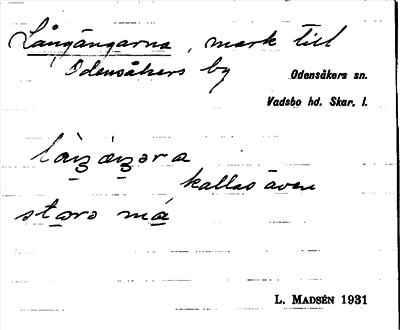 Långängarna, mark till
Odensåkers by
Odensåkers sn.
Vadsbo hd. Skar. l.
kallas även
L. MADSÉN 1931